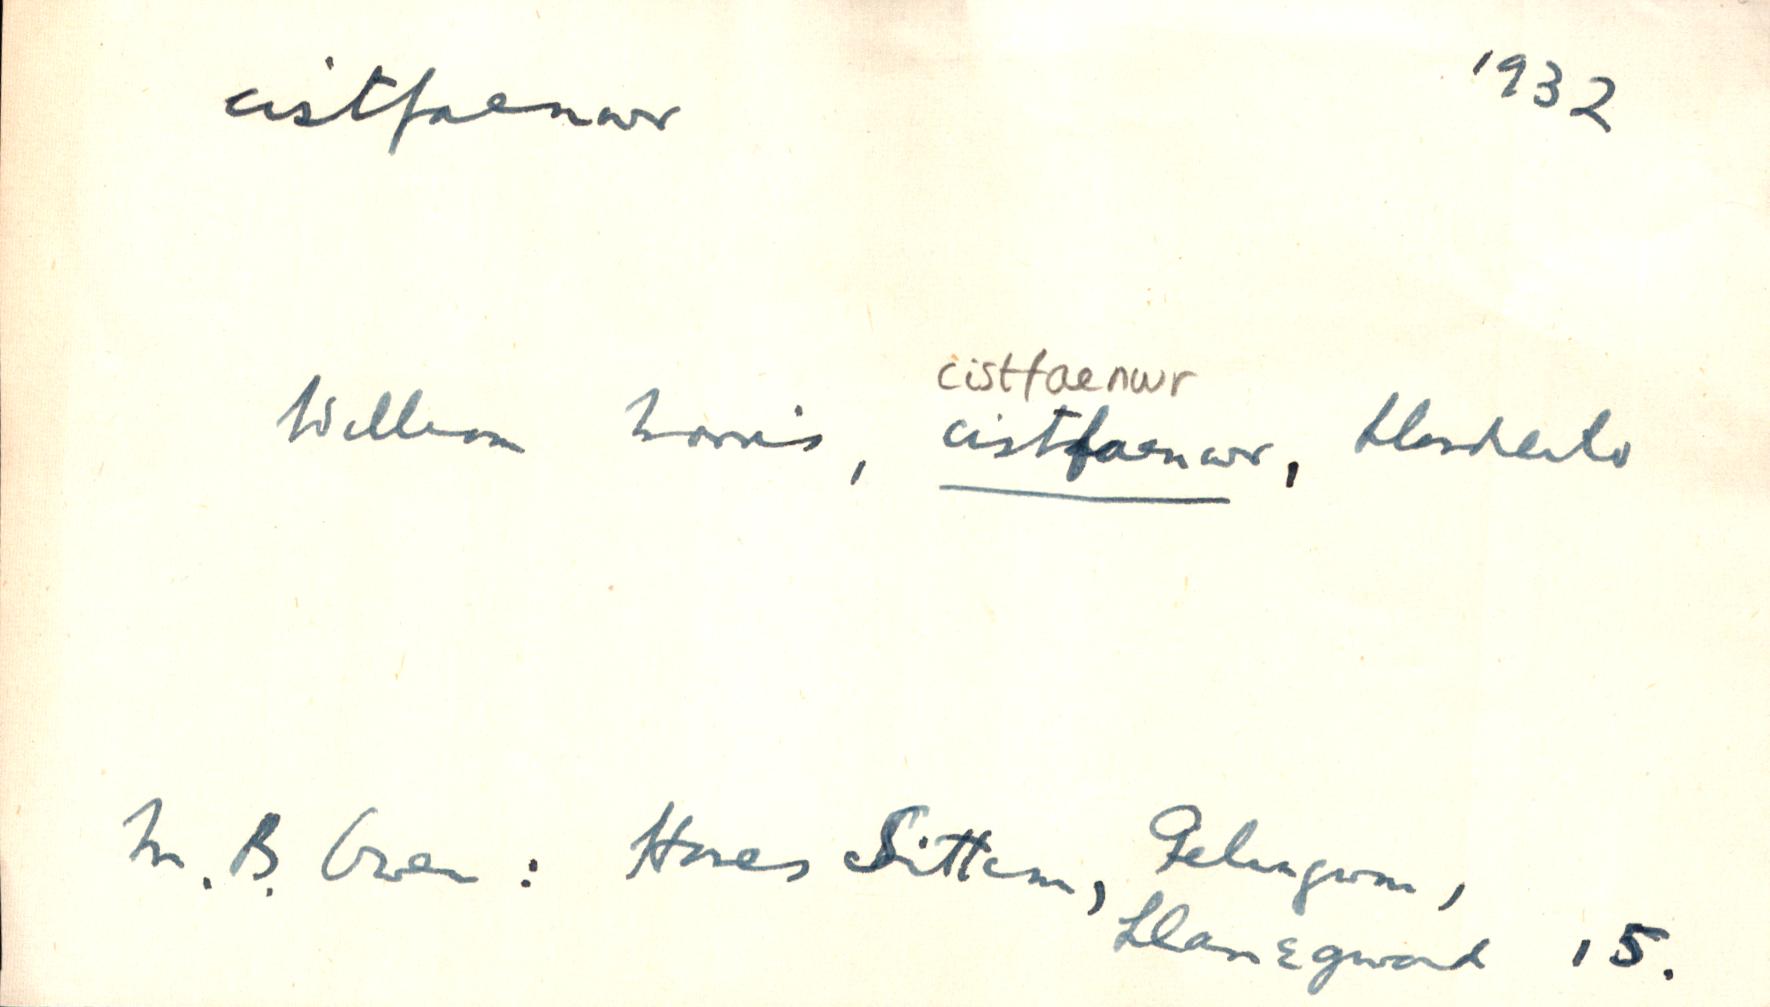 cistfaenwr 1932
cistfaenwr
William Morris, cistfaenwr, Llandeilo
M. B. Owen: Hanes Sittem, Felingwm,
Llanegwad 15.